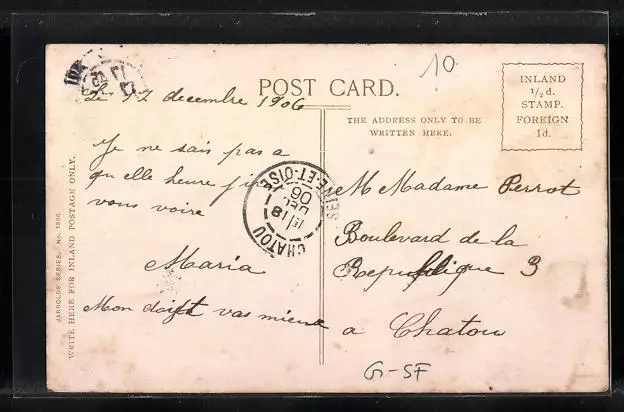 POST CARD.
10
INLAND
½ d.
STAMP.
FOREIGN
1d.
THE ADDRESS ONLY TO BE
WRITTEN HERE.
Le 17 decembre 1906
Je ne sais pas a
qu elle heure j'i
vous voire
Maria
Mon doigt vas mieux
M Madame Perrot
Boulevard de la
Republique 3
a Chatou
G-SF
CHATOU
SEINE-ET-OISE
18
DEC
06
JARROLDS' SERIES. No.
WRITE HERE FOR INLAND POSTAGE ONLY.